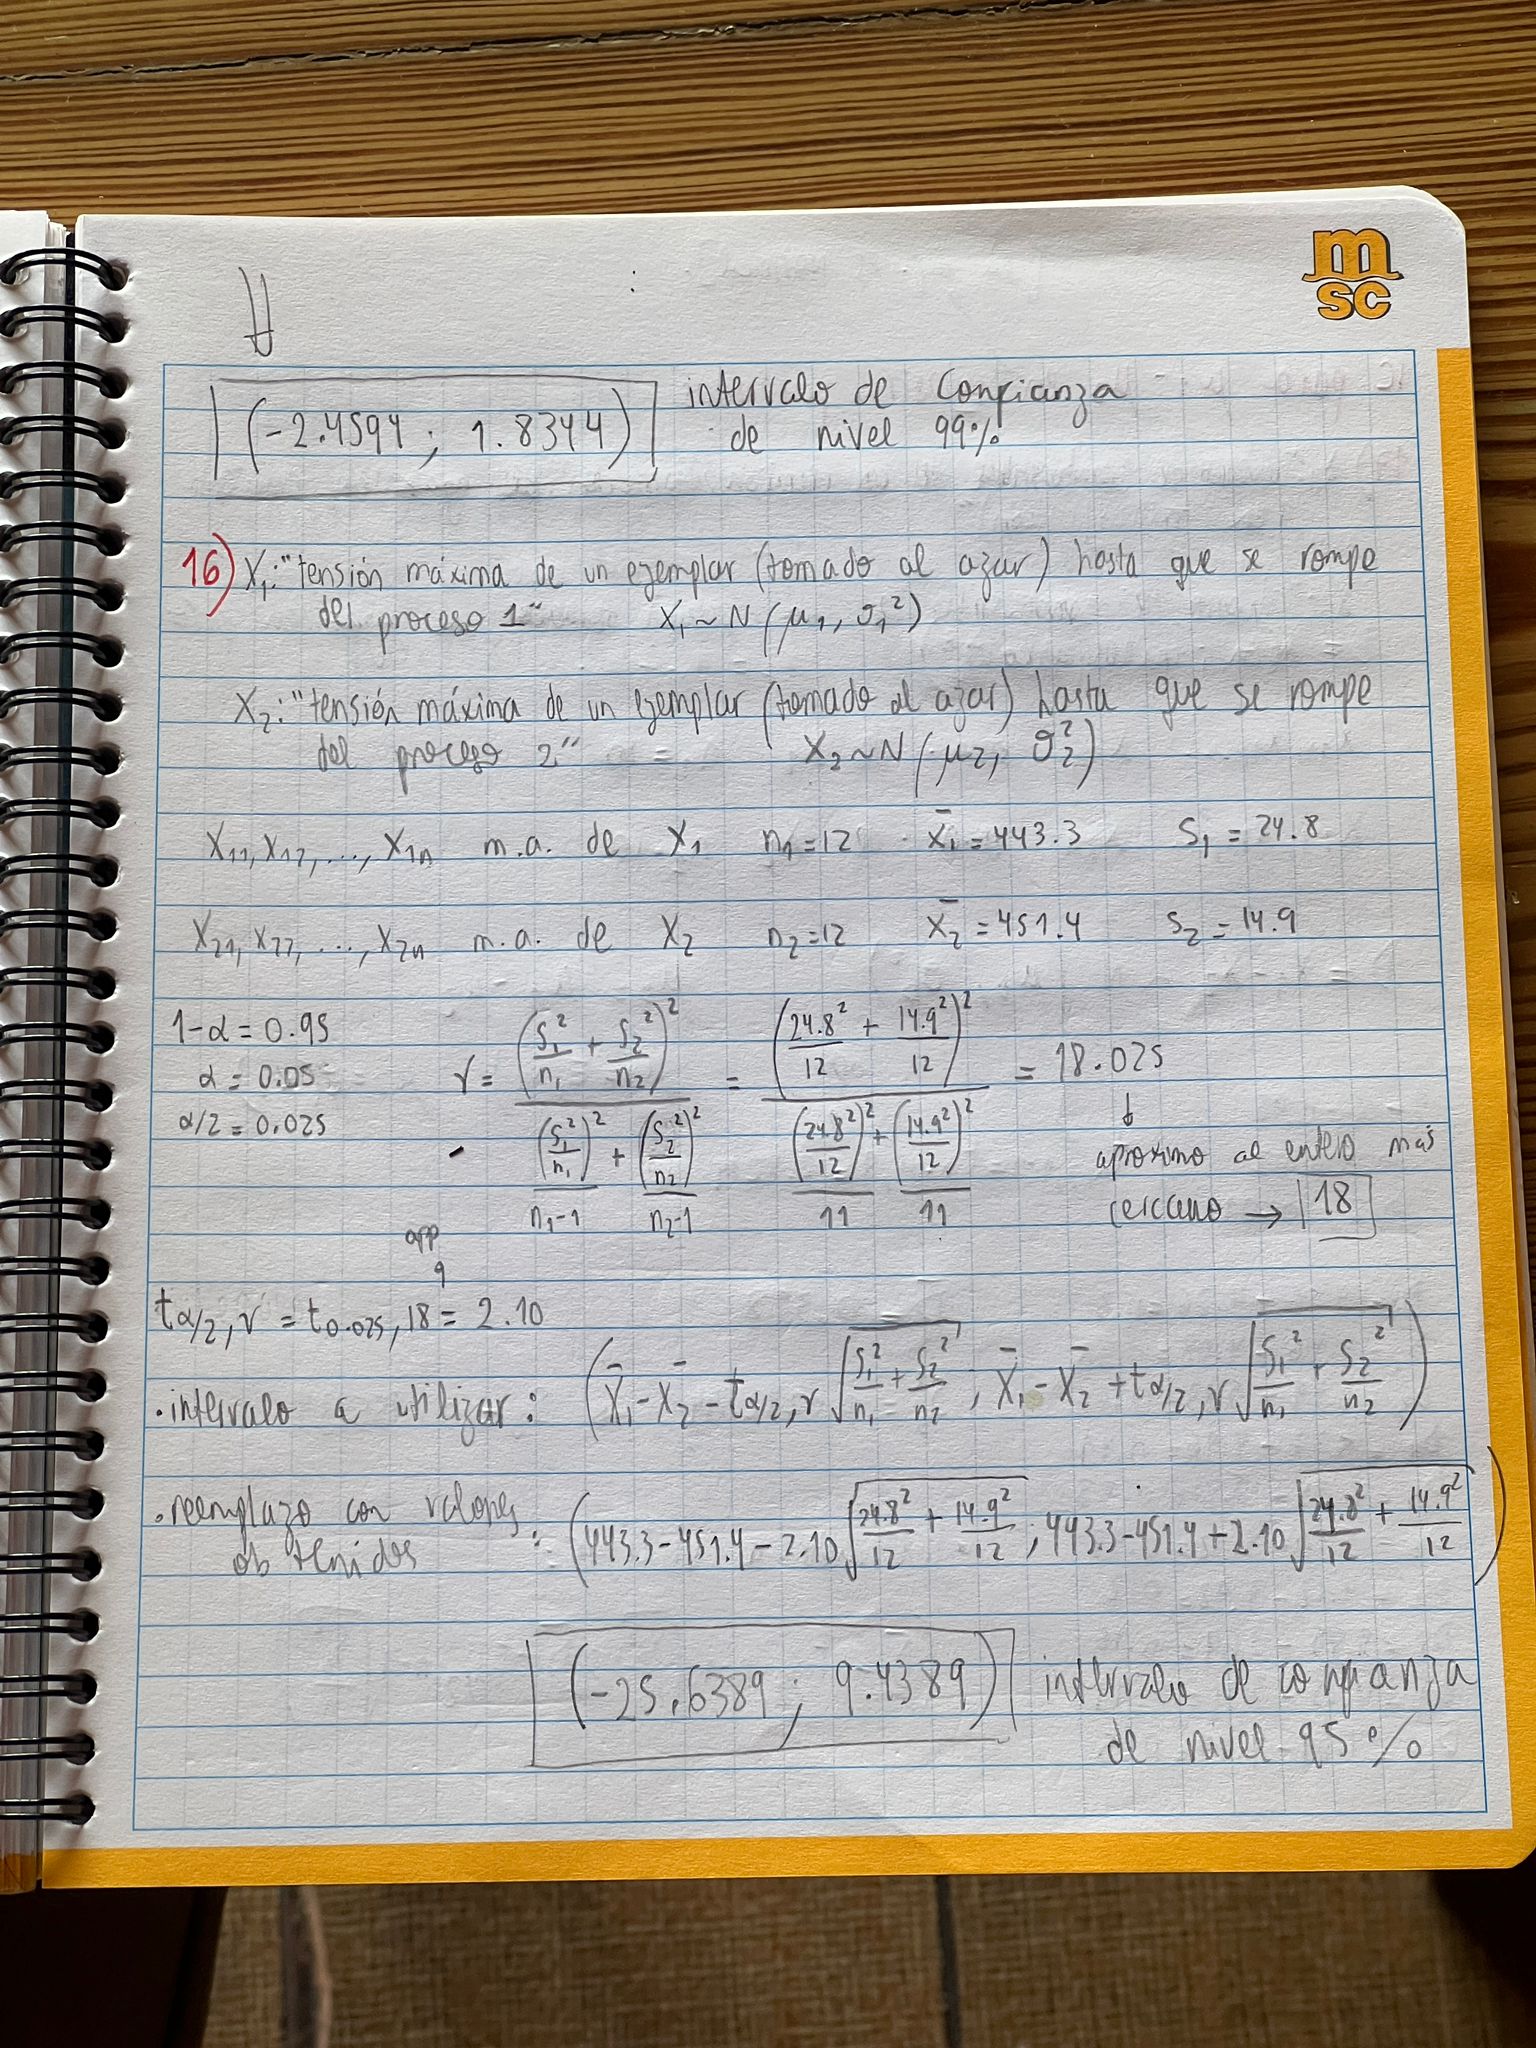 m
sc
(-2.4594 ; 1.8344) intervalo de confianza
de nivel 99%
16) X₁: "tensión máxima de un ejemplar (tomado al azar) hasta que se rompe
del proceso 1" X₁ ~ N(μ₁, σ₁²)
X₂: "tensión máxima de un ejemplar (tomado al azar) hasta que se rompe
del proceso 2" X₂ ~ N(μ₂, σ₂²)
X₁₁, X₁₂, ..., X₁ₙ m.a. de X₁ n₁ = 12 x̄₁ = 443.3 S₁ = 24.8
X₂₁, X₂₂, ..., X₂ₙ m.a. de X₂ n₂ = 12 x̄₂ = 451.4 S₂ = 14.9
1-α = 0.95
α = 0.05
α/2 = 0.025
γ = (S₁²/n₁ + S₂²/n₂)² / ((S₁²/n₁)²/(n₁-1) + (S₂²/n₂)²/(n₂-1)) = (24.8²/12 + 14.9²/12)² / ((24.8²/12)²/11 + (14.9²/12)²/11) = 18.025
↓
aproximo al entero más
cercano → 18
app
t α/2, γ = t 0.025, 18 = 2.10
• intervalo a utilizar: (X̄₁ - X̄₂ - t α/2, γ √(S₁²/n₁ + S₂²/n₂) ; X̄₁ - X̄₂ + t α/2, γ √(S₁²/n₁ + S₂²/n₂))
• reemplazo con valores
obtenidos : (443.3 - 451.4 - 2.10 √(24.8²/12 + 14.9²/12) ; 443.3 - 451.4 + 2.10 √(24.8²/12 + 14.9²/12))
(-25.6389 ; 9.4389) intervalo de confianza
de nivel 95%